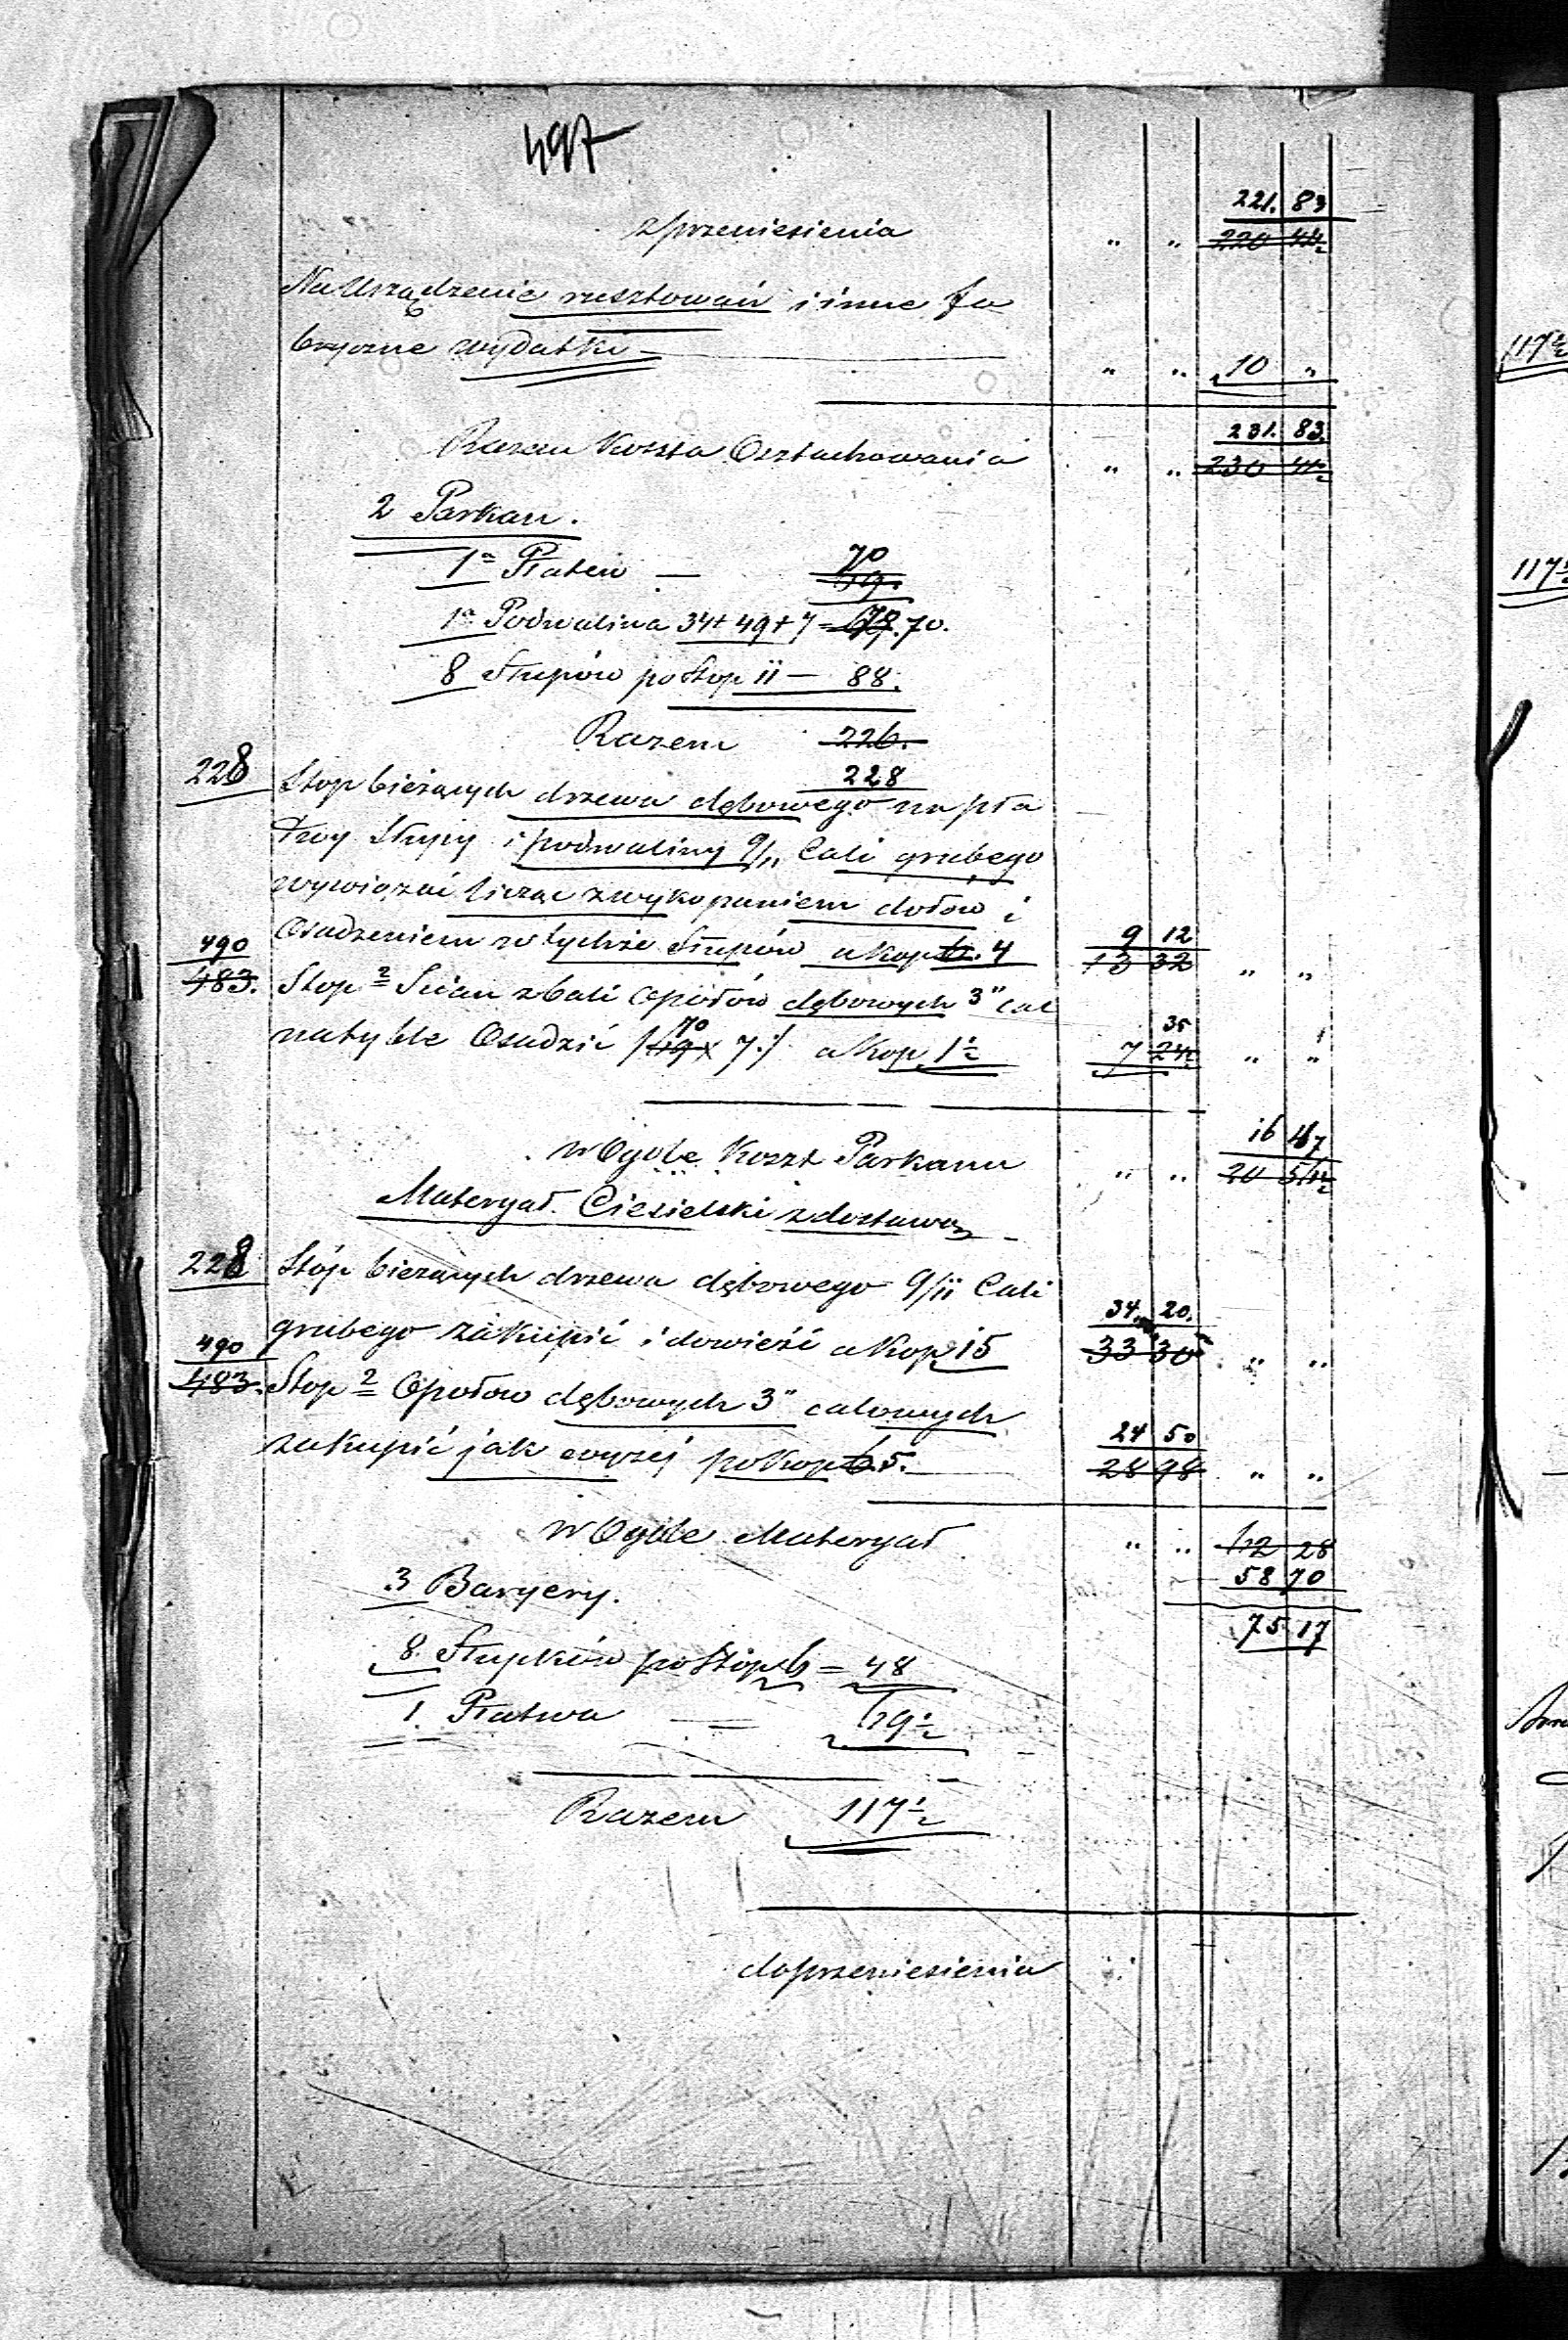 497
221. 83
z przeniesienia " " 220 44½
Na Urządzenie rusztowań i inne fa
bryczne wydatki — " " 10 "
231. 83.
Razem Koszta Osztachowania " " 230 44½
2 Parkan.
70
1ª Płatew — 69.
1ª Podwalina 34+49+7 = 70.
8 Słupów po Stop 11 — 88.
Razem 226.
228
228 Stop bieżących drzewa dębowego na pła
twy Słupy i podwaliny 9/11 Cali grubego
wywiązać licząc z wykopaniem dołów i
490 Osadzeniem w tychże Słupów a kop 6. 4 9 12
13 32 " "
483. Stop ² Ścian z bali Opołów dębowych 3" cal
70 35
na tyble Osadzić /: 69 x 7 :/ a kop 1½ 7 24 " "
16 47
w Ogóle Koszt Parkanu " " 20 56½
Materyał Ciesielski z dostawą
228 Stóp bieżących drzewa dębowego 9/11 Cali
34. 20.
grubego zakupić i dowieść a Kop 15 33 30 " "
490
483. Stop ² Opołów dębowych 3" calowych
24 50
zakupić jak wyżej po Kop 6. 5. 28 98 " "
w Ogóle Materyał " " 62 28
58 70
3 Baryery.
75. 17
8. Słupków po Stóp 6 = 48
1. Płatwa = 69½
Razem 117½
do przeniesienia
117½
117½